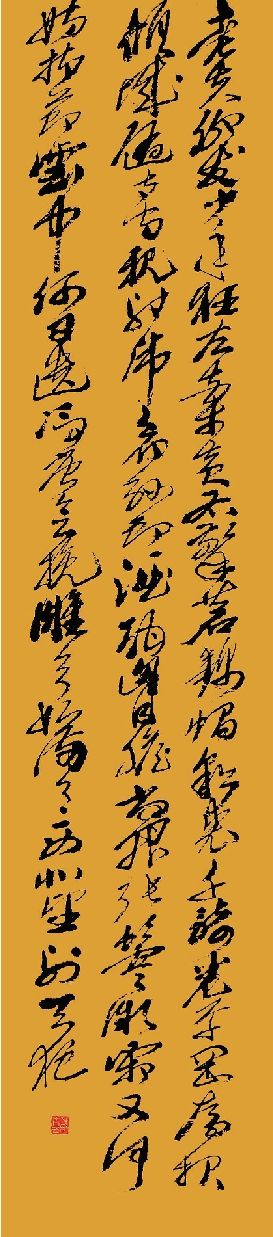 老夫聊發少年狂左牽黃右擎蒼錦帽貂裘千騎卷平岡為報
傾城隨太守親射虎看孫郎酒酣胸膽尚開張鬢微霜又何
妨持節雲中何日遣馮唐會挽雕弓如滿月西北望射天狼